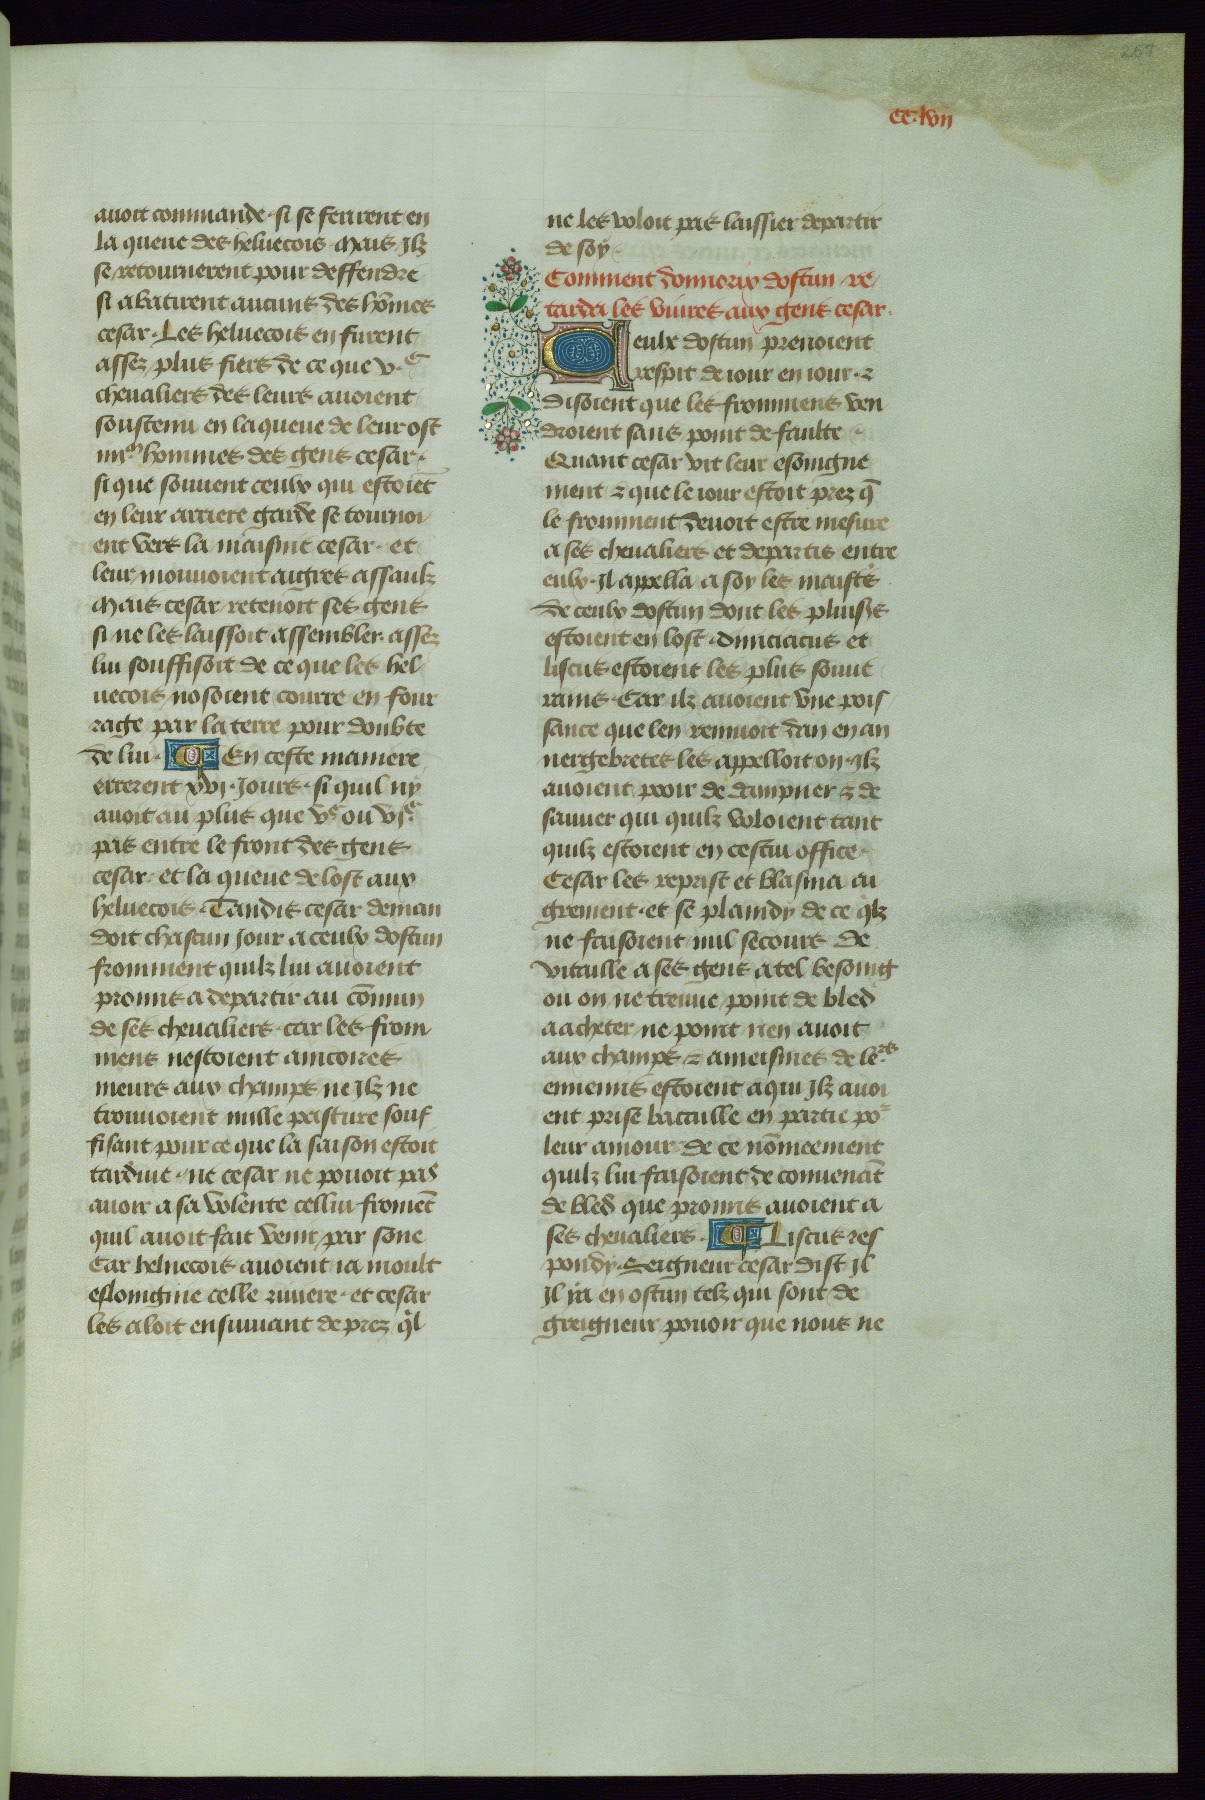 257
CC.lvii
auoit commande · si se ferirent en
la queue des heluecois · Mais Ilz
se retournerent pour deffendre
si abatirent aucuns des hōmes
cesar · Les heluecois en furent
assez plus fiers de ce que v.c
cheualiers des leurs auoient
soustenu en la queue de leur ost
iiii.m hommes des gens cesar ·
si que souuent ceulx qui estoiēt
en leur arriere garde se tournoi
ent vers la maisnie cesar · et
leur mouuoient aigres assaulz
Mais cesar retenoit ses gens
si ne les laissoit assembler assez
lui souffisoit de ce que les hel
uecois nosoient courre en four
rage par la terre pour doubte
de lui · En ceste maniere
errerent xvi · Jours · si quil ny
auoit au plus que v.c ou vi.c
pas entre le front des gens
cesar · et la queue de lost aux
heluecois · Tandis cesar deman
doit chascun Jour a ceulx dostun
fromment quilz lui auoient
promis a departir au cōmun
de ses cheualiers · car les from
mens nestoient aincoires
meurs aux champs ne Ilz ne
trouuoient nulle pasture souf
fisant pour ce que la saison estoit
tardiue · ne cesar ne pouoit pas
auoir a sa volente cellui fromēt
quil auoit fait venir par sone
Car heluecois auoient ia moult
eslongnie celle riuiere · et cesar
les aloit ensuiuant de prez q̄l
ne les voloit pas laissier departir
de soy ·
Comment donnorix dostun re/
tarda les viures aux gens cesar ·
Ceulx dostun prenoient
respit de iour en iour · ⁊
disoient que les fromens ven
droient sans point de faulte ·
Quant cesar vit leur esongne
ment ⁊ que le iour estoit prez q̄
le fromment deuoit estre mesure
a ses cheualiers et departis entre
eulx · Il appella a soy les maist's
de ceulx dostun dont les pluis's
estoient en lost · Diuiciacus et
liscus estoient les plus souue
rains · Car ilz auoient vne pois
sance que len remuoit dan en an
uergebretes les appelloit on · Ilz
auoient pooir de dampner ⁊ de
sauuer qui quilz voloient tant
quilz estoient en cestui office ·
Cesar les reprist et blasma ai
grement · et se plaindy de ce q̄lz
ne faisoient nul secours de
vitaille a ses gens a tel besoing
ou on ne treuue point de bled
a acheter ne point nen auoit
aux champs ⁊ a meismes de le.rs
ennemis estoient a qui Ilz auoi
ent prise bataille en partie po'
leur amour · De ce nōmeement
quilz lui faisoient de conuenāt
de bled que promis auoient a
ses cheualiers · Liscus res
pondy · Seigneur cesar dist Il
Il ya en ostun telz qui sont de
greigneur pouoir que nous ne